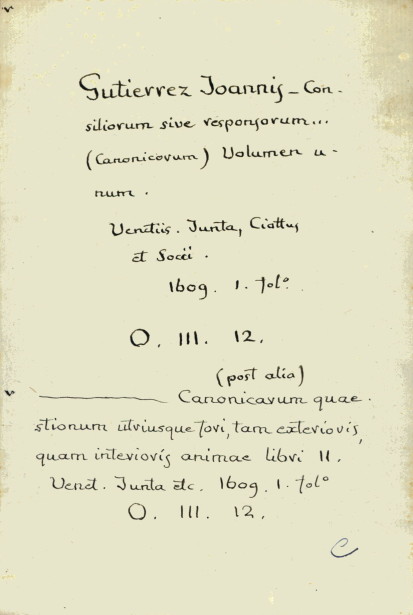 Gutierrez Joannis - Con-
siliorum sive responsorum...
(Canonicorum) Volumen u-
num.
Venetiis. Junta, Ciottus
et Socii.
1609. 1. folº
O. III. 12.
(post alia)
Canonicarum quae-
stionum utriusque fori, tam exterioris,
quam interioris animae libri II.
Venet. Junta etc. 1609. 1. folº
O. III. 12.
C